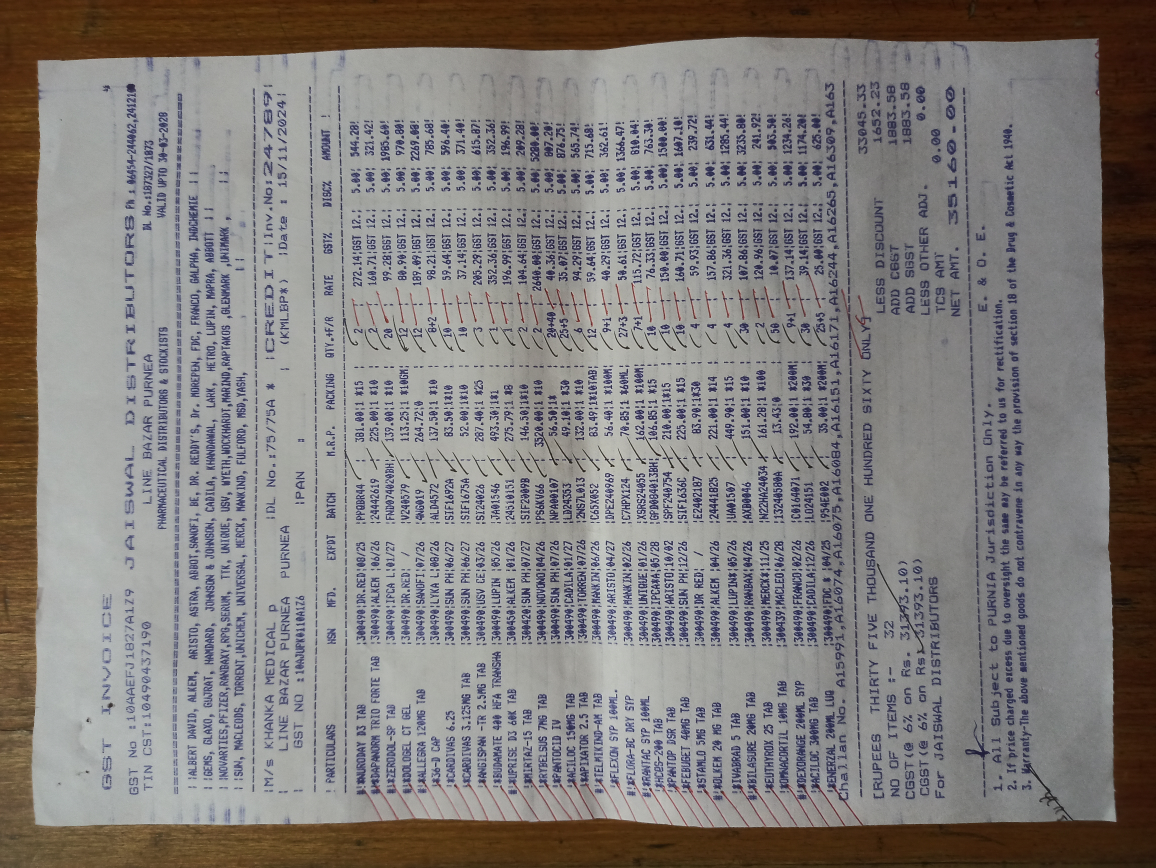 GST INVOICE
GST No :10AAEFJ1827A1Z9 JAISWAL DISTRIBUTORS Ph : 06454-244062,242120
TIN CST:10490437190 LINE BAZAR PURNEA DL No.:187327/1873
PHARMACEUTICAL DISTRIBUTORS & STOCKISTS VALID UPTO 30-03-2028
ALBERT DAVID, ALKEM, ARISTO, ASTRA, ABBOT,SANOFI, BE, DR. REDDY'S, Dr. MOREPEN, FDC, FRANCO, GALPHA, INDCHEMIE
GEMS, GLAXO, GUJRAT, HANDARD, JOHNSON & JOHNSON, CADILA, KHANDAWAL, LARK, HETRO, LUPIN, MAPRA, ABBOTT
NOVARTIES,PFIZER,RANBAXY,RPG,SERUM, TTK, UNIQUE, USV, WYETH,WOCKHARDT,MARIND,RAPTAKOS ,GLENMARK ,UNIMARK ,
SUN, MACLEODS, TORRENT,UNICHEM, UNIVERSAL, MERCK, MANKIND, FULFORD, MSD,YASH,
M/s KHANKA MEDICAL p DL No.:75/75A * CREDIT Inv.No:24789
LINE BAZAR PURNEA PURNEA (KMLBP*) Date : 15/11/2024
GST NO :10AJUPK0110A1Z6 PAN :
PARTICULARS HSN MFD. EXPDT BATCH M.R.P. PACKING QTY.+F/R RATE GST% DISC% AMOUNT
AURODAY D3 TAB 300490 DR.RED 08/25 PPQBR44 381.00 1 *15 2 272.14 GST 12. 5.00 544.28
DAPANORM TRIO FORTE TAB 300490 ALKEM 06/26 24442619 225.00 1 *10 2 160.71 GST 12. 5.00 321.42
ZERODOL-SP TAB 300490 IPCA L 01/27 FND074020BH 139.00 1 *10 20 99.28 GST 12. 5.00 1985.60
DOLOGEL CT GEL 300490 DR.RED / V240579 113.25 1 *10GM 12 80.90 GST 12. 5.00 970.80
ALLEGRA 120MG TAB 300490 SANOFI 07/26 4NG019 264.72 0 12 189.09 GST 12. 5.00 2269.08
3A-D CAP 300490 LYKA L 08/26 ALD4572 137.50 1 *10 8+2 98.21 GST 12. 5.00 785.68
CARDIVAS 6.25 300490 SUN PH 06/27 SIF1692A 83.50 1*10 10 59.64 GST 12. 5.00 596.40
CARDIVAS 3.125MG TAB 300490 SUN PH 06/27 SIF1675A 52.00 1*10 10 37.14 GST 12. 5.00 371.40
ANGISPAN -TR 2.5MG TAB 300490 USV CE 03/26 S124026 287.40 1 *25 3 205.29 GST 12. 5.00 615.87
BUDAMATE 400 HFA TRANSHA 300490 LUPIN 05/26 JA01546 493.30 1*1 1 352.36 GST 12. 5.00 352.36
UPRISE D3 60K TAB 300450 ALKEM 01/27 24510151 275.79 1 *8 1 196.99 GST 12. 5.00 196.99
MIRTAZ-15 TAB 300420 SUN PH 07/27 SIF2009B 146.50 1*10 2 104.64 GST 12. 5.00 209.28
RYBELSUS 7MG TAB 300490 NOVONO 04/26 PS6NV66 3520.00 1 *10 2 2640.00 GST 12. 5.00 5280.00
PANTOCID IV 300490 SUN PH 06/26 NPA000107 56.50 1* 20+40 40.36 GST 12. 5.00 807.20
ACILOC 150MG TAB 300490 CADILA 01/27 LD24353 49.10 1 *30 25+5 35.07 GST 12. 5.00 876.75
APIXATOR 2.5 TAB 300490 TORREN 07/26 2NS7L013 132.00 1 *10 6 94.29 GST 12. 5.00 565.74
TELMIKIND-AM TAB 300490 MANKIN 06/26 C6SYX052 83.49 1*10TAB 12 59.64 GST 12. 5.00 715.68
FLEXON SYP 100ML 300490 ARISTO 04/27 DPE240969 56.40 1 *100M 9+1 40.29 GST 12. 5.00 362.61
FLORA-BC DRY SYP 300490 MANKIN 02/26 C7HPX124 70.85 1 *60ML 27+3 50.61 GST 12. 5.00 1366.47
RANTAC SYP 100ML 300490 UNIQUE 01/26 XSRS24055 162.00 1 *100M 7+1 115.72 GST 12. 5.00 810.04
HCQS-200 TAB 300490 IPCA4A 05/28 GPD084013BH 106.85 1 *15 10 76.33 GST 12. 5.00 763.30
PANTOP DSR TAB 300490 ARISTO 10/02 SPF240754 210.00 1*15 10 150.00 GST 12. 5.00 1500.00
FEBUGET 40MG TAB 300490 SUN PH 12/26 SIF1636C 225.00 1 *15 10 160.71 GST 12. 5.00 1607.10
STAMLO 5MG TAB 300490 DR RED / E2402187 83.90 1*30 4 59.93 GST 12. 5.00 239.72
OLKEM 20 MG TAB 300490 ALKEM 04/26 24441825 221.00 1 *14 4 157.86 GST 12. 5.00 631.44
IVABRAD 5 TAB 300490 LUPIN* 05/26 UA01507 449.90 1 *15 4 321.36 GST 12. 5.00 1285.44
BILASURE 20MG TAB 300490 RANBAX 04/26 AXB0046 151.00 1 *10 30 107.86 GST 12. 5.00 3235.80
EUTHYROX 25 TAB 300490 MERCK* 11/25 N22HA24034 161.28 1 *100 2 120.96 GST 12. 5.00 241.92
OMNACORTIL 10MG TAB 300439 MACLEO 06/28 13240580A 13.43 0 50 10.08 GST 12. 5.00 503.90
DEXORANGE 200ML SYP 300490 FRANCO 02/26 CO164071 192.00 1 *200M 9+1 137.14 GST 12. 5.00 1234.26
ACTILOC 300MG TAB 300490 CADILA 12/26 LD24151 54.80 1 *30 30 39.14 GST 12. 5.00 1174.20
ENERZAL 200ML LUQ 300490 FDC * 04/25 954E002 35.00 1 *200M 25+5 25.00 GST 12. 5.00 625.00
Challan No. A15991,A16074,A16075,A16084,A16151,A16171,A16244,A16265,A16309,A163
33045.33
[RUPEES THIRTY FIVE THOUSAND ONE HUNDRED SIXTY ONLY] LESS DISCOUNT 1652.23
NO OF ITEMS :-- 32 ADD CGST 1883.58
CGST(@ 6% on Rs. 31393.10) ADD SGST 1883.58
CGST(@ 6% on Rs. 31393.10) LESS OTHER ADJ. 0.00
For JAISWAL DISTRIBUTORS TCS AMT 0.00
NET AMT. 35160.00
E. & O. E.
1. All Subject to PURNIA Jurisdiction Only.
2. If price charged excess due to oversight the same may be referred to us for rectification.
3. Warranty-The above mentioned goods do not contravene in any way the provision of section 18 of the Drug & Cosmetic Act 1940.